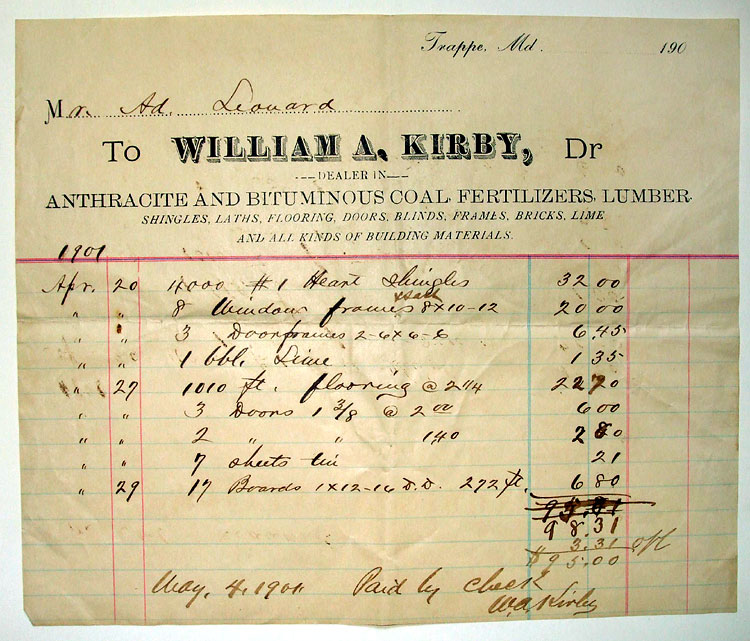 Trappe, Md. 190
Mr. Ad. Leonard
To WILLIAM A. KIRBY, Dr
DEALER IN
ANTHRACITE AND BITUMINOUS COAL, FERTILIZERS, LUMBER.
SHINGLES, LATHS, FLOORING, DOORS, BLINDS, FRAMES, BRICKS, LIME
AND ALL KINDS OF BUILDING MATERIALS.
1901
Apr. 20 4000 #1 Heart Shingles 32 00
" " 8 Window frames & Sash 8x10-12 20 00
" " 3 Doorframes 2-6x6-6 6.45
" " 1 bbl. Lime 1 35
" 27 1010 ft. flooring @ 2 1/4 22 70
" " 3 Doors 1 3/8 @ 2 00 6 00
" " 2 " " 1.40 2 80
" " 7 sheets tin 21
" 29 17 Boards 1x12-16 D.D. 272 ft. 6 80
98.31
3.31 off
$95.00
May, 4, 1901 Paid by check
W.A. Kirby